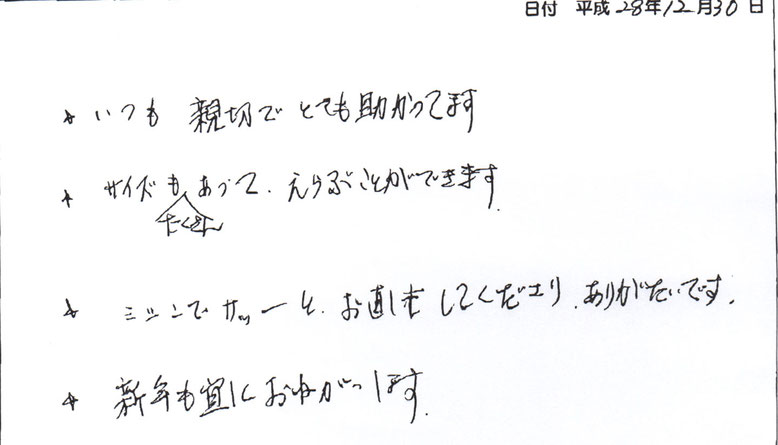 日付 平成 28年12月30日
☆ いつも 親切で とても助かってます
☆ サイズもたくさんあって、えらぶことができます。
☆ ミシンでサッーと、お直しもしてくださり、ありがたいです。
☆ 新年も宜しくおねがいします。